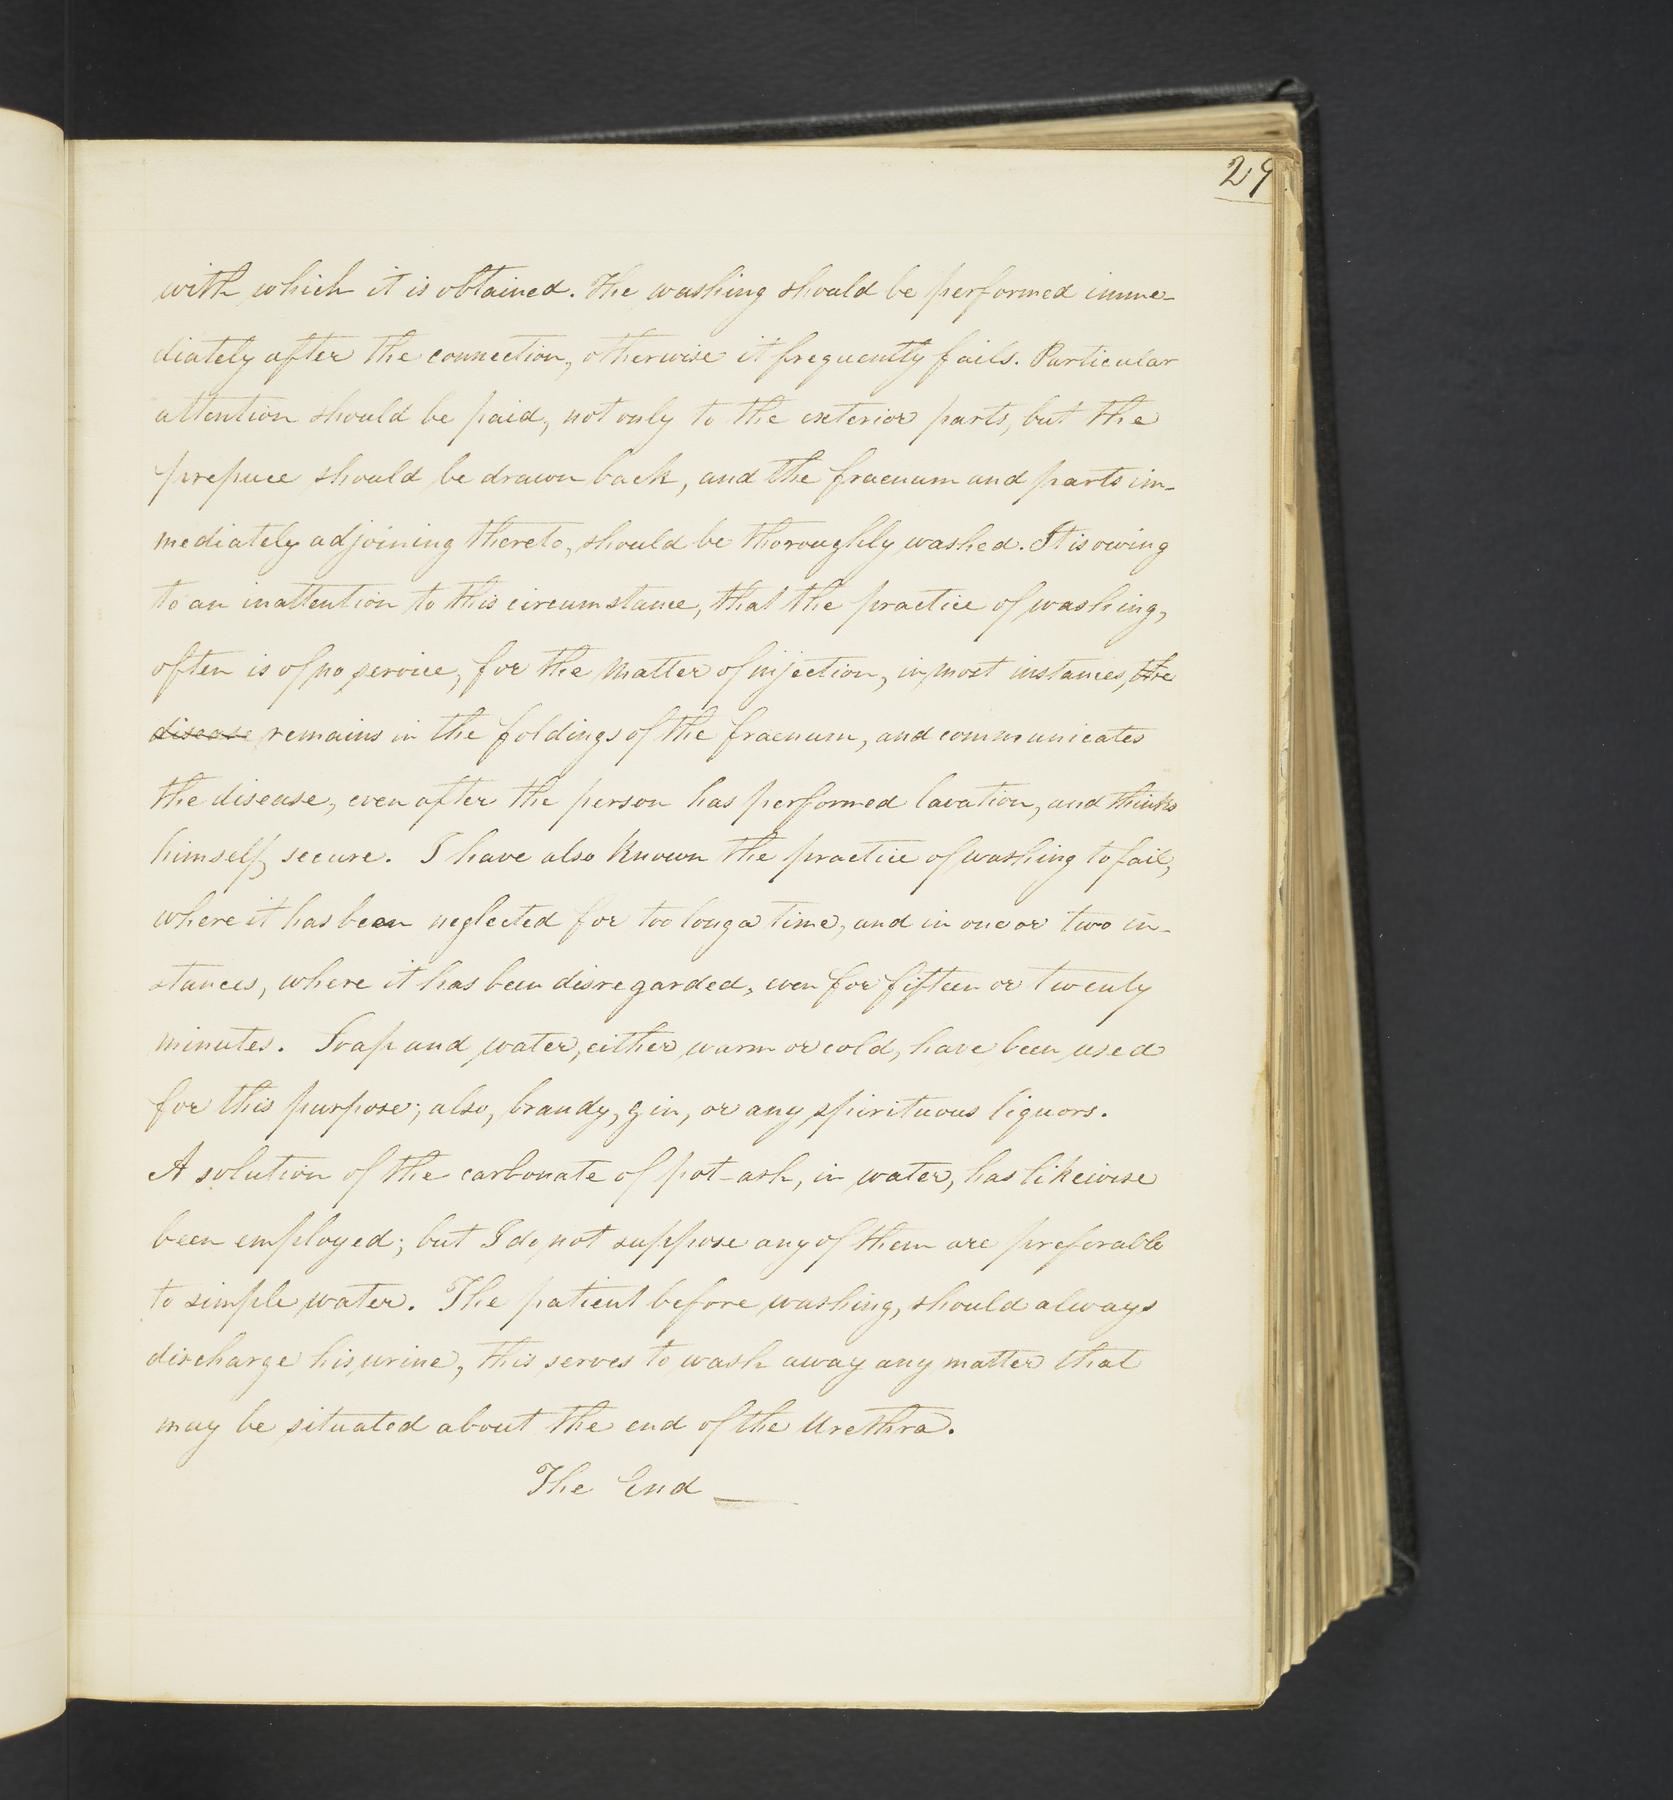 29
with which it is obtained. The washing should be performed imme-
diately after the connection, otherwise it frequently fails. Particular
attention should be paid, not only to the exterior parts, but the
prepuce should be drawn back, and the fraenum and parts im-
mediately adjoining thereto, should be thoroughly washed. It is owing
to an inattention to this circumstance, that the practice of washing,
often is of no service, for the matter of injection, in most instances, the
disease remains in the foldings of the fraenum, and communicates
the disease, even after the person has performed lavation, and thinks
himself, secure. I have also known the practice of washing to fail,
where it has been neglected for too long a time, and in one or two in-
stances, where it has been disregarded, even for fifteen or twenty
minutes. Soap and water, either warm or cold, have been used
for this purpose; also, brandy, gin, or any spirituous liquors.
A solution of the carbonate of pot-ash, in water, has likewise
been employed; but I do not suppose any of them are preferable
to simple water. The patient before washing, should always
discharge his urine, this serves to wash away any matter that
may be situated about the end of the Urethra.
The End